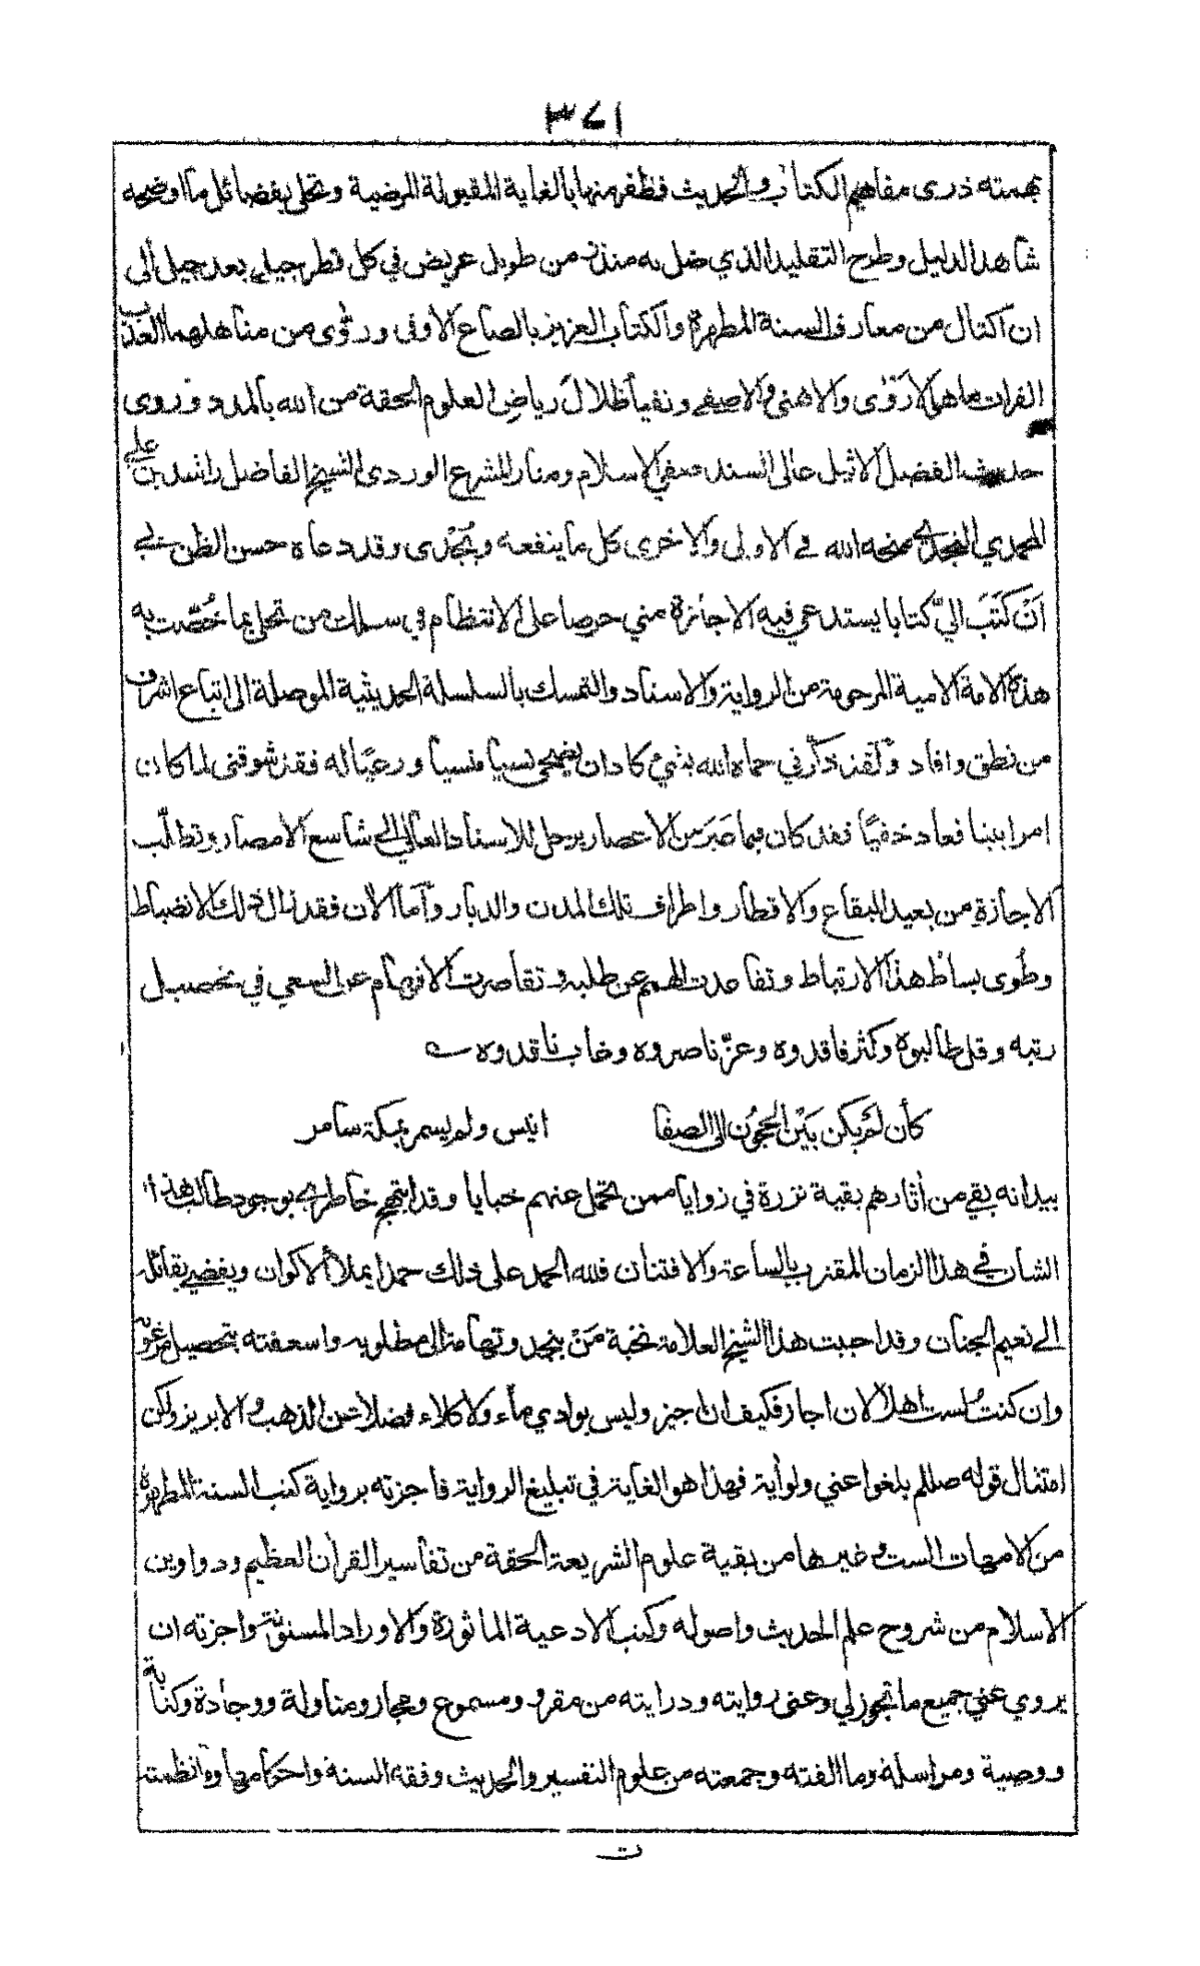 ٣٧١
بهمته ذرى مفاهيم الكتاب والحديث فظفر منهما بالغاية المقبولة المرضية وتحلى بفضائل ما اوضحه
شاهد الدليل وطرح التقليد الذي ضل به منذ زمن طويل عريض في كل قطر جيل بعد جيل الى
ان اكتال من معارف السنة المطهرة والكتاب العزيز بالصاع الاوفى وروى من مناهلهما العذاب
الفرات ما هو الاروى والاهنى والاصفى وتفيأ ظلال رياض العلوم الحقة من الله بالمدد وروى
حديث الفضل الاثيل عالى السند صفي الاسلام ومنار المشرع الوردى الشيخ الفاضل راشد بن علي
المحمدي النجدي منحه الله في الاولى والاخرى كل ما ينفعه ويجدى وقد دعاه حسن الظن بي
اَنْ كَتَبَ اليّ كتابا يستدعي فيه الاجازة مني حرصا على الانتظام في سلك من تحلى بما خُصّت به
هذه الامة الامية المرحومة من الرواية والاسناد والتمسك بالسلسلة الحديثية الموصلة الى اتباع اشرف
من نطق وافاد ولقد ذكّرني حماه الله بشيء كاد ان يضحى نسيا منسيا ورعيًا له فقد شوقنى لما كان
امرا بينا فعاد خفيًا فقد كان فيما غبر من الاعصار يرحل للاسناد العالي الى شاسع الامصار وتطلّب
الاجازة من بعيد البقاع والاقطار واطراف تلك المدن والديار وأما الآن فقد زال ذلك الانضباط
وطُوى بساط هذا الارتباط وتقاعدت الهمم عن طلبه وتقاصرت الافهام عن السعي في تحصيل
رتبه وقل طالبوه وكثر فاقدوه وعزّ ناصروه وخاب ناقدوه
كأن لم يكن بَيْن الحجون الى الصفا انيس ولم يسمر بمكة سامر
بيد انه بقي من أثارهم بقية نزرة في زوايا ممن تحمل عنهم خبايا وقد ابتهج خاطري بوجود طالب هذا
الشان في هذا الزمان المقترب بالساعة والافتنان فلله الحمد على ذلك حمدا يملأ الاكوان ويفضي بقائله
الى نعيم الجنان وقد اجبت هذا الشيخ العلامة نخبة مَنْ بنجد وتهامة الى مطلوبه واسعفته بتحصيل مرغوبه
وان كنت لست اهلا لان اجاز فكيف ان اجيز وليس بوادي ماء ولا كلاء فضلا عن الذهب والابريز ولكن
امتثال قوله صللم بلغوا عني ولو أية فهذا هو الغاية في تبليغ الرواية فاجزته برواية كتب السنة المطهرة
من الامهات الست وغيرها من بقية علوم الشريعة الحقة من تفاسير القرأن العظيم ودواوين
الاسلام من شروح علم الحديث واصوله وكتب الادعية الماثورة والاوراد المسنونة واجزته ان
يروي عني جميع ما تجوز لي وعنى روايته ودرايته من مقرو ومسموع ومجاز ومناولة ووجادة وكتابة
ووصية ومراسلة وما الفته وجمعته من علوم التفسير والحديث وفقه السنة واحكامها وما نظمت
ت